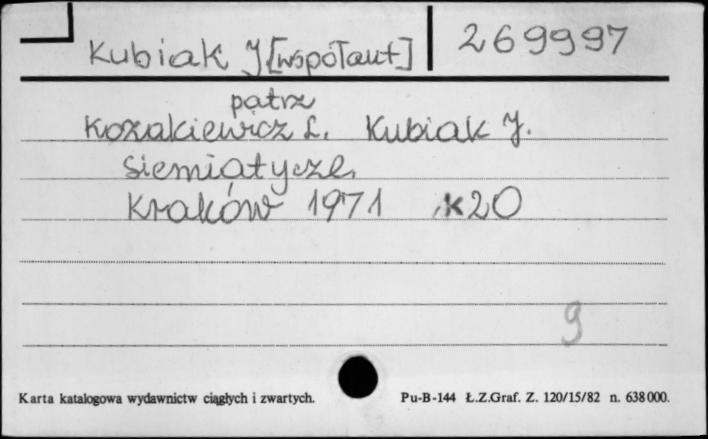 Kubiak J [współaut] 269997
patrz
Kozakiewicz L. Kubiak J.
Siemiatycze.
Kraków 1971 K20
9
Karta katalogowa wydawnictw ciągłych i zwartych. Pu-B-144 Ł.Z.Graf. Z. 120/15/82 n. 638000.